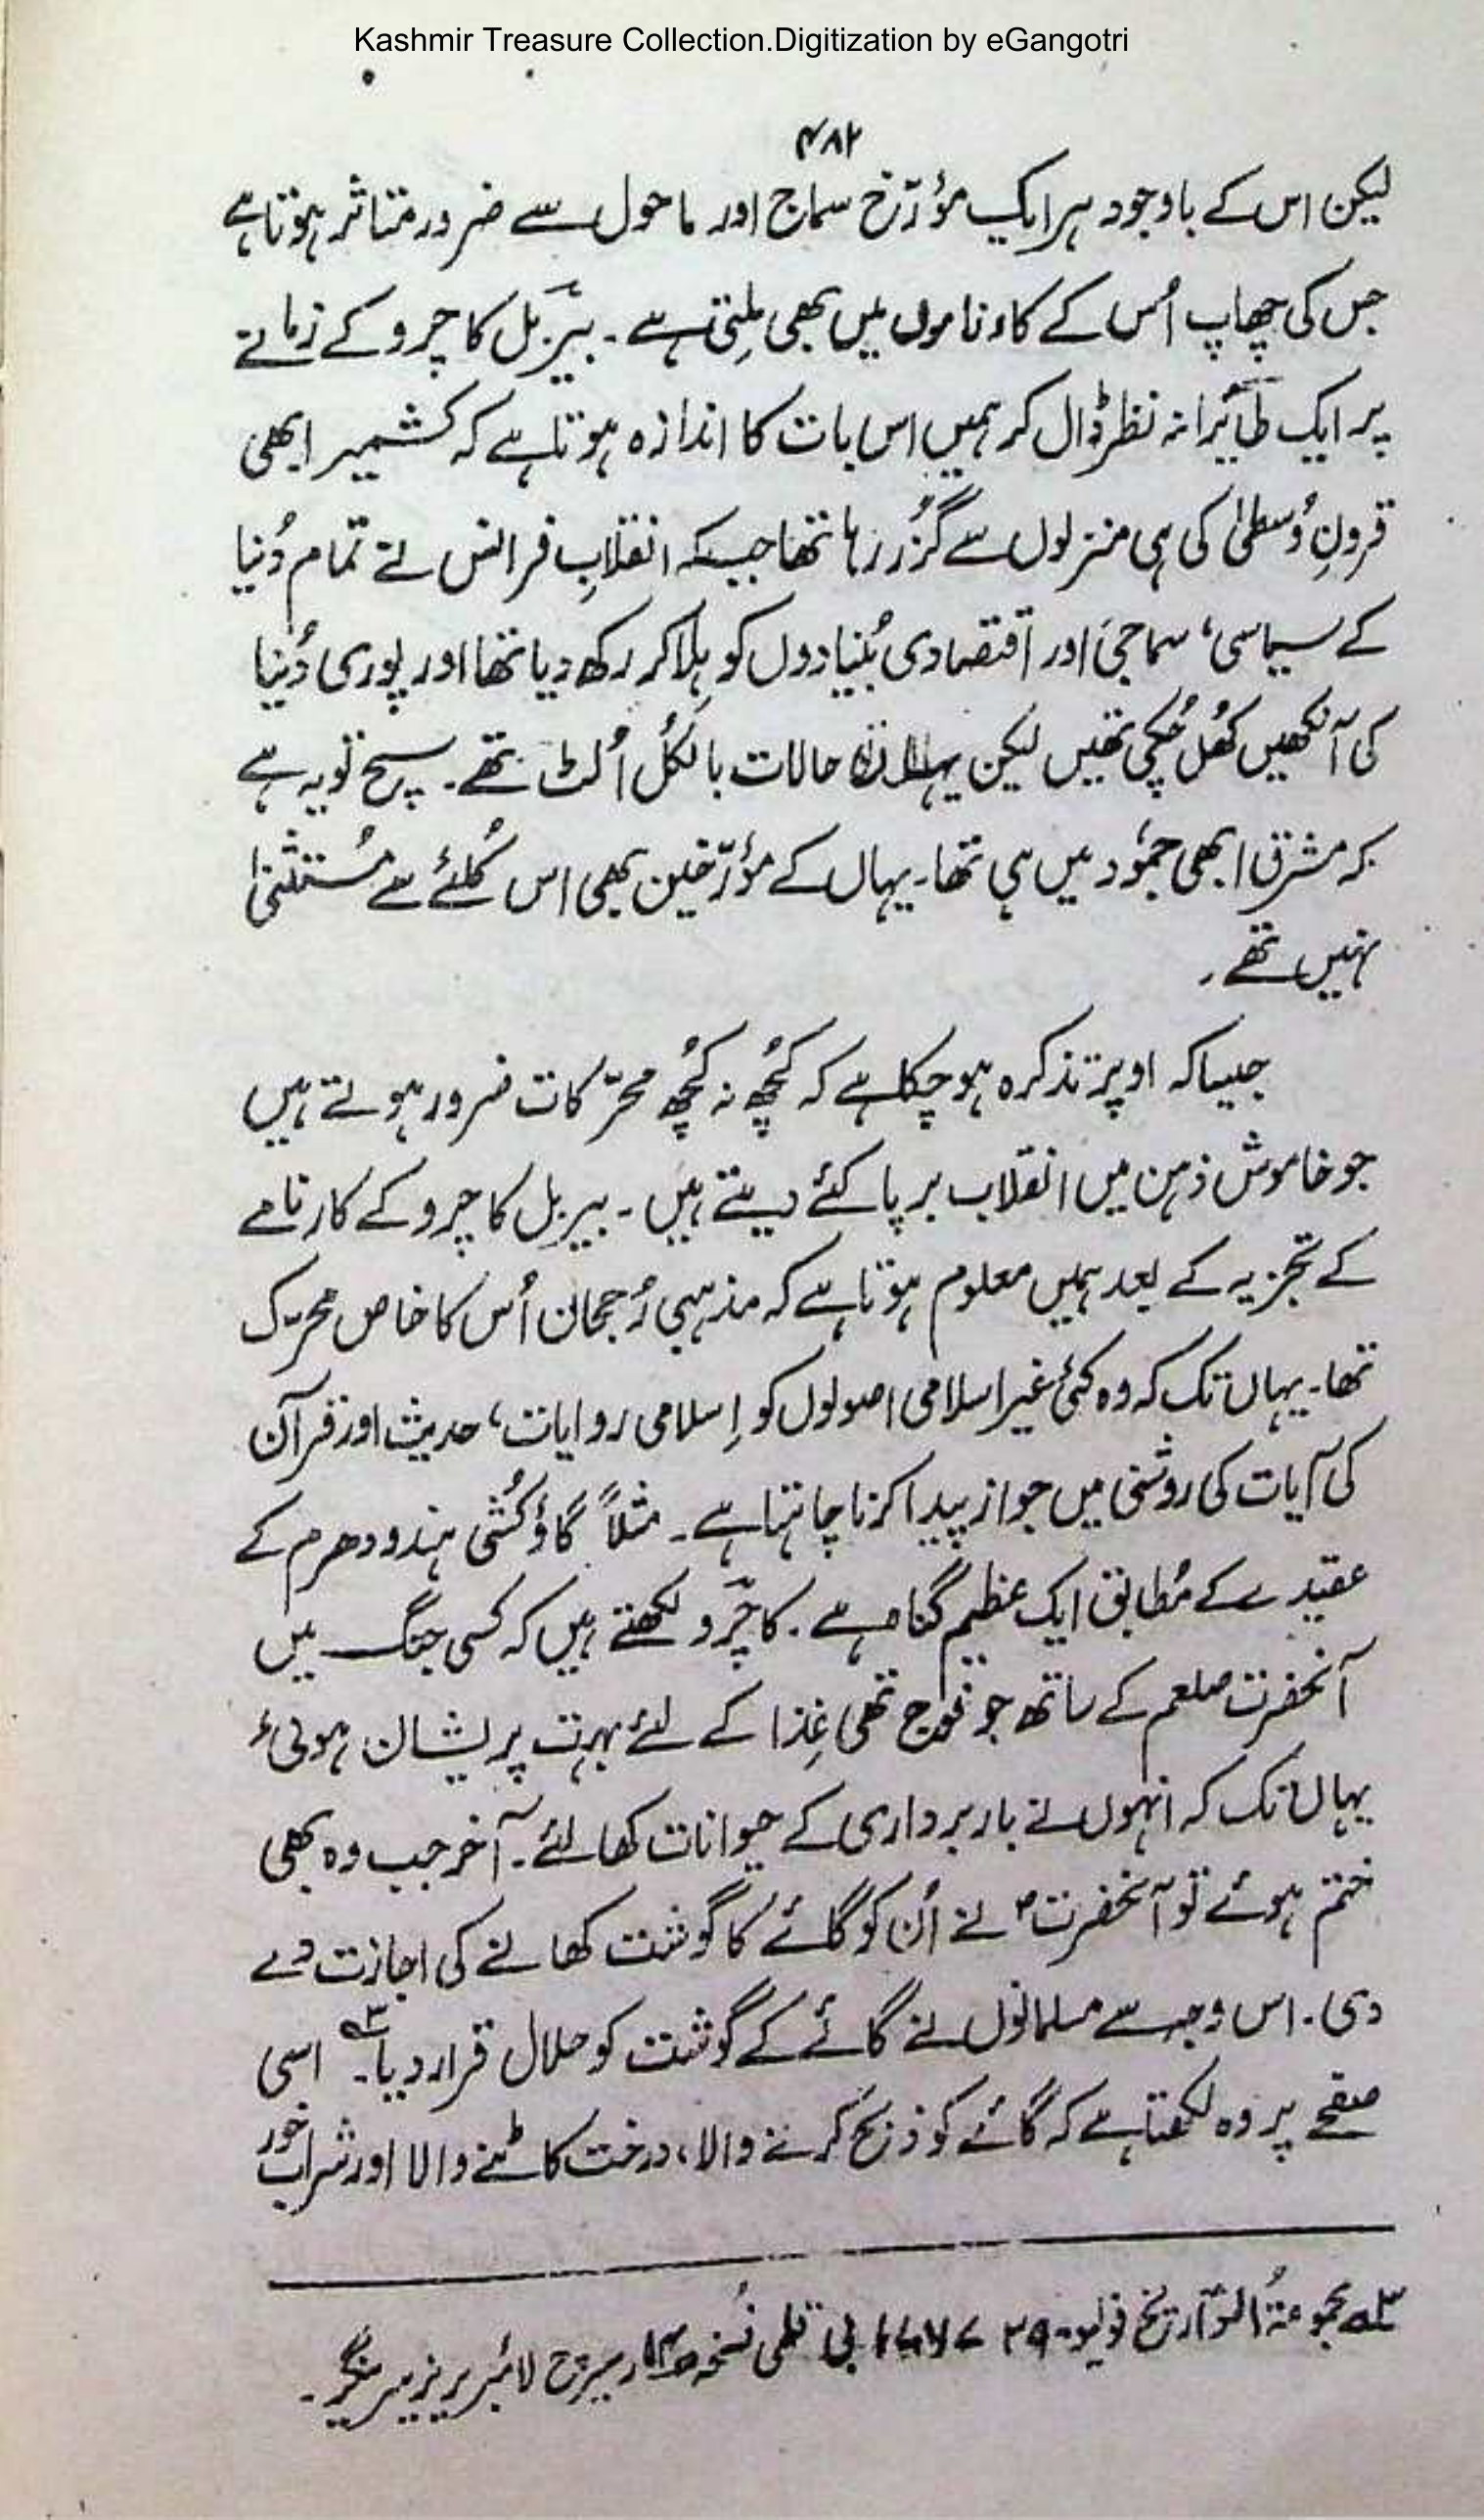 Kashmir Treasure Collection.Digitization by eGangotri
۴۸۲
لیکن اس کے باوجود ہر ایک مؤرّخ سماج اور ماحول سے ضرور متاثر ہوتا ہے
جس کی چھاپ اُس کے کارناموں میں بھی ملِتی ہے۔ بیرَبل کاچرو کے زمانے
پر ایک طائرانہ نظر ڈال کر ہمیں اس بات کا اندازہ ہوتا ہے کہ کشمیر ابھی
قرونِ وُسطیٰ کی ہی منزلوں سے گُزر رہا تھا جبکہ انقلابِ فرانس نے تمام دُنیا
کے سیاسی، سماجی اور اقتصادی بُنیادوں کو ہِلا کر رکھ دیا تھا اور پوری دُنیا
کی آنکھیں کھُل چُکی تھیں لیکن یہاں حالات بالکُل اُلٹ تھے۔ سچ تو یہ ہے
کہ مشرق ابھی جمُود میں ہی تھا۔ یہاں کے مؤرّخین بھی اس کُلئے سے مُستثنیٰ
نہیں تھے۔
جیسا کہ اوپر تذکرہ ہو چکا ہے کہ کُچھ نہ کُچھ محرّکات ضرور ہوتے ہیں
جو خاموش ذہن میں انقلاب برپا کئے دیتے ہیں۔ بیربل کاچرو کے کارنامے
کے تجزیہ کے بعد ہمیں معلوم ہوتا ہے کہ مذہبی رُجحان اُس کا خاص محرّک
تھا۔ یہاں تک کہ وہ کئی غیر اسلامی اصولوں کو اِسلامی روایات، حدیث اور قرآن
کی آیات کی روشنی میں جواز پیدا کرنا چاہتا ہے۔ مثلاً گاؤکُشی ہندو دھرم کے
عقیدے کے مُطابق ایک عظیم گناہ ہے۔ کاچَرو لکھتے ہیں کہ کسی جنگ میں
آنحضرت صلعم کے ساتھ جو فوج تھی غِذا کے لئے بہت پریشان ہوئی
یہاں تک کہ انہوں نے باربرداری کے حیوانات کھا لئے۔ آخر جب وہ بھی
ختم ہوئے تو آنحضرتؐ نے اُن کو گائے کا گوشت کھانے کی اجازت دے
دی۔ اس وجہ سے مسلمانوں نے گائے کے گوشت کو حلال قرار دیا۔ ۳ اسی
صفحے پر وہ لکھتا ہے کہ گائے کو ذبح کرنے والا، درخت کاٹنے والا اور شراب خور
۳ مجموعۃُ التوّاریخ فولیو ۲۹ بی قلمی نُسخہ ریسرچ لائبریری سرینگر۔